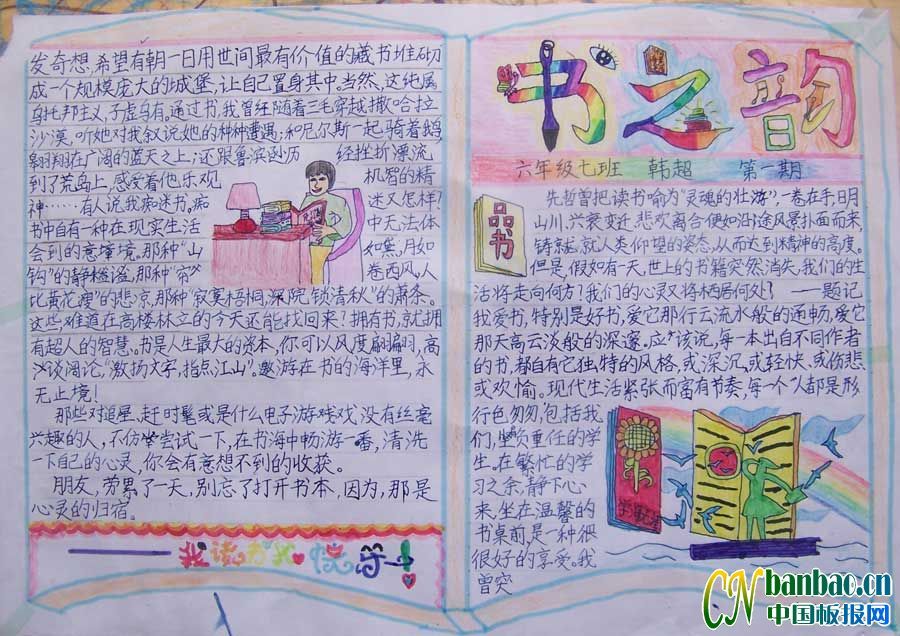 书之韵
六年级七班 韩超 第一期
品书
先哲曾把读书喻为“灵魂的壮游”,一卷在手,明
山川,兴衰变迁,悲欢离合便如沿途风景扑面而来,
铸就人类仰望的姿态,从而达到精神的高度。
但是,假如有一天,世上的书籍突然消失,我们的生
活将走向何方?我们的心灵又将栖居何处? ——题记
我爱书,特别是好书,爱它那行云流水般的通畅,爱它
那天高云淡般的深邃。应该说,每一本出自不同作者
的书,都自有它独特的风格,或深沉,或轻快、或伤悲
或欢愉。现代生活紧张而富有节奏,每一个人都是形
行色匆匆,包括我
们,坐负重任的学
生。在繁忙的学
习之余,静下心
来,坐在温馨的
书桌前,是一种很
很好的享受。我
曾突
发奇想,希望有朝一日用世间最有价值的藏书堆砌
成一个规模庞大的城堡,让自己置身其中。当然,这纯属
乌托邦主义,子虚乌有。通过书,我曾经随着三毛穿越撒哈拉
沙漠,听她对我叙说她的种种遭遇;和尼尔斯一起,骑着鹅,
翱翔在广阔的蓝天之上;还跟鲁滨逊历 经挫折漂流
到了荒岛上,感受着他乐观 机智的精
神……有人说我痴迷书。痴 迷又怎样?
书中自有一种在现实生活 中无法体
会到的意境,那种“山 如黛,月如
钩”的静谧,那种“帘 卷西风,人
比黄花瘦”的悲凉,那种“寂寞梧桐,深院,锁清秋”的萧条。
这些难道在高楼林立的今天还能找回来?拥有书,就拥
有超人的智慧。书是人生最大的资本,你可以风度翩翩,高
谈阔论,“激扬文字,指点江山”。遨游在书的海洋里,永
无止境!
那些对追星、赶时髦或是什么电子游戏戏,没有丝毫
兴趣的人,不仿尝试一下,在书海中畅游一番,清洗
一下自己的心灵,你会有意想不到的收获。
朋友,劳累了一天,别忘了打开书本,因为,那是
心灵的归宿。
我读书我快乐
CN banbao.cn
中国板报网